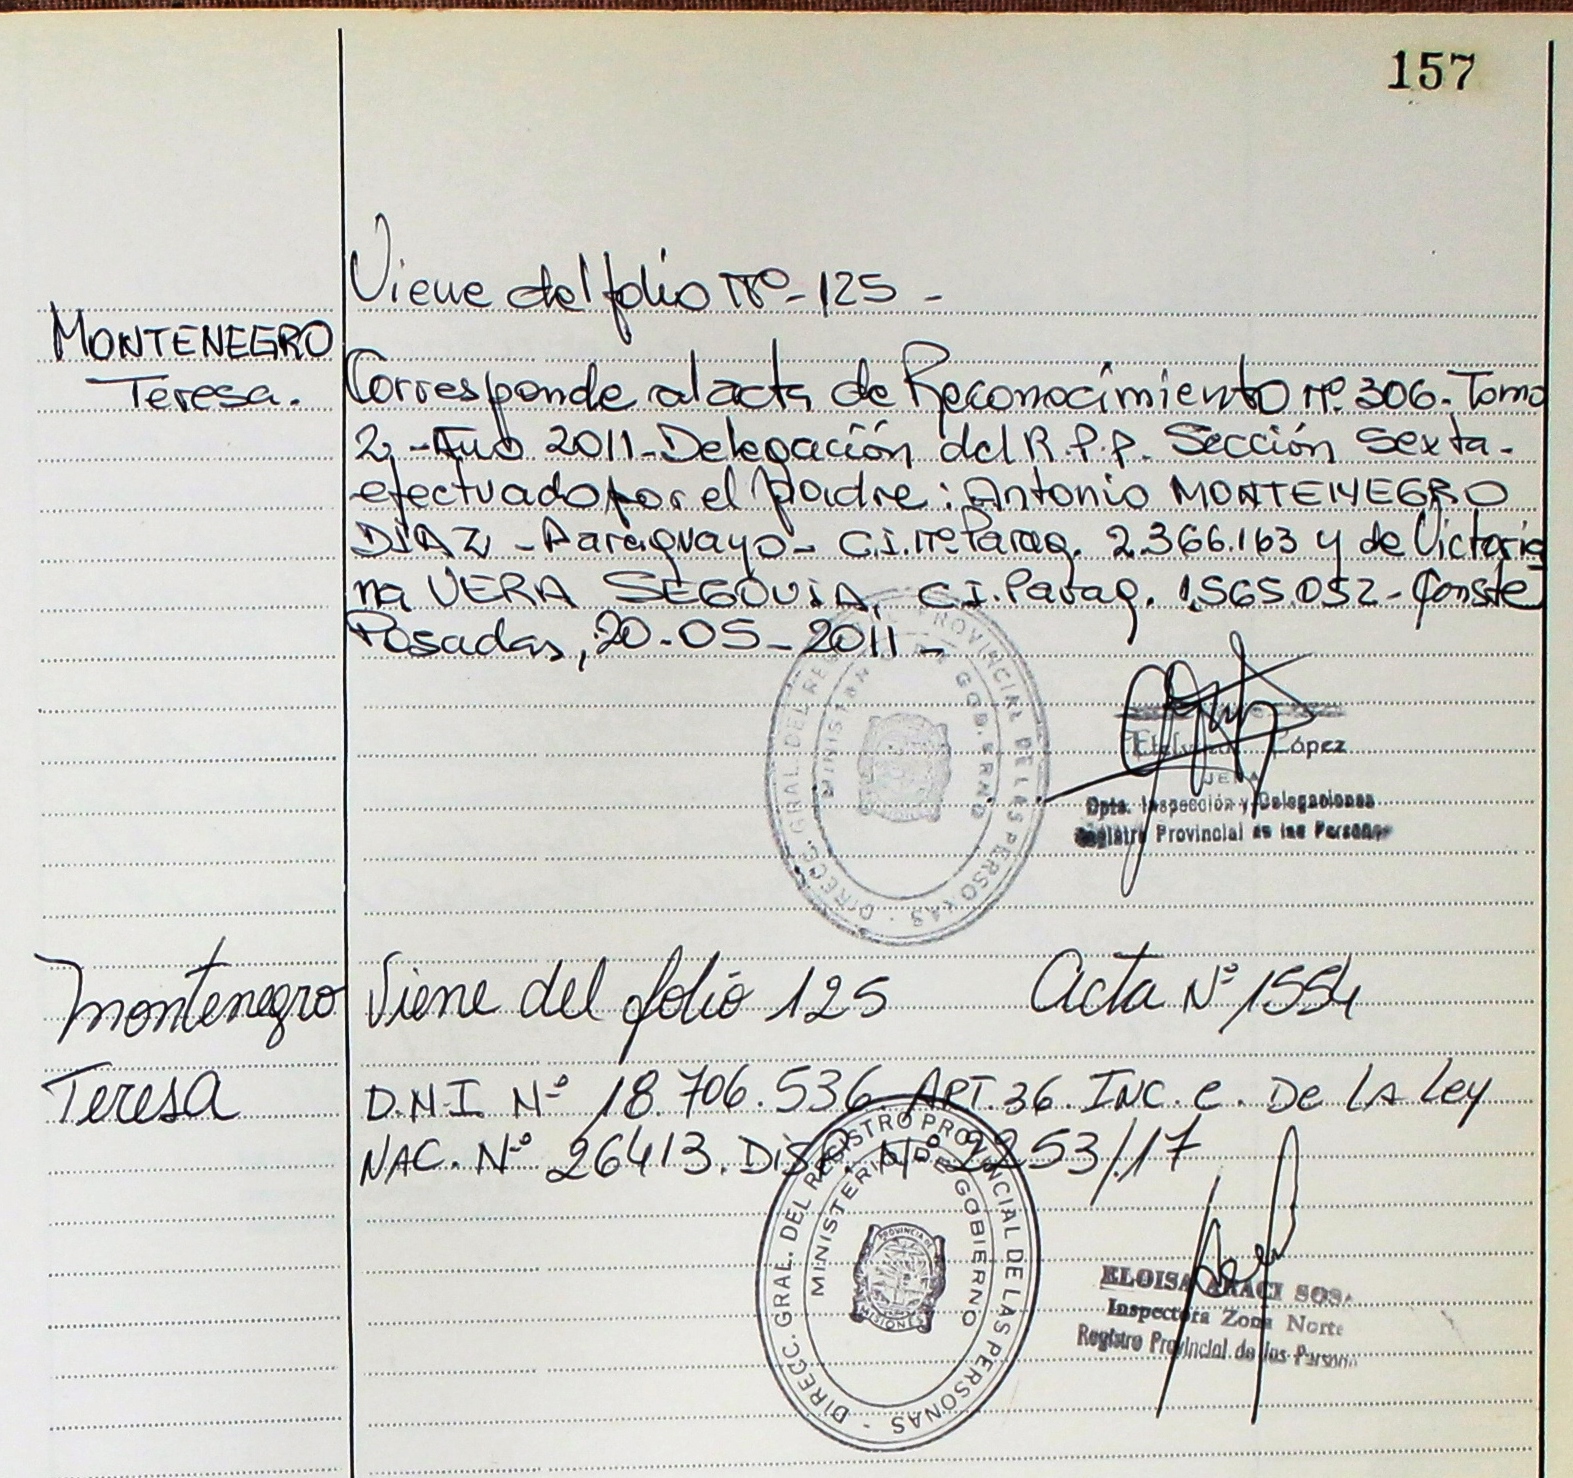 157
Viene del folio Nº-125-
MONTENEGRO
Teresa.
Corresponde al acta de Reconocimiento nº 306-Tomo
2-Año 2011-Delegación del R.P.P. Sección Sexta-
efectuado por el padre: Antonio MONTENEGRO
DIAZ - Paraguayo- C.I.nº Parag. 2.366.163 y de Victoria
na VERA SEGOVIA, C.I.Parag. 1.565.052-Conste
Posadas, 20-05-2011-
DIRECC. GRAL. DEL REG PROVINCIAL DE LAS PERSONAS
GOBIERNO
López
JEFA
Dpto. Inspección y Delegaciones
Registro Provincial de las Personas
Montenegro
Teresa
Viene del folio 125 Acta Nº 1554
D.N.I. Nº 18.706.536 ART.36. INC. e. De LA Ley
NAC. Nº 26413. DISP. Nº 2253/17
DIRECC. GRAL. DEL REGISTRO PROVINCIAL DE LAS PERSONAS
MINISTERIO DE GOBIERNO
PROVINCIA DE
MISIONES
ELOISA ARACI SOSA
Inspectora Zona Norte
Registro Provincial de las Personas